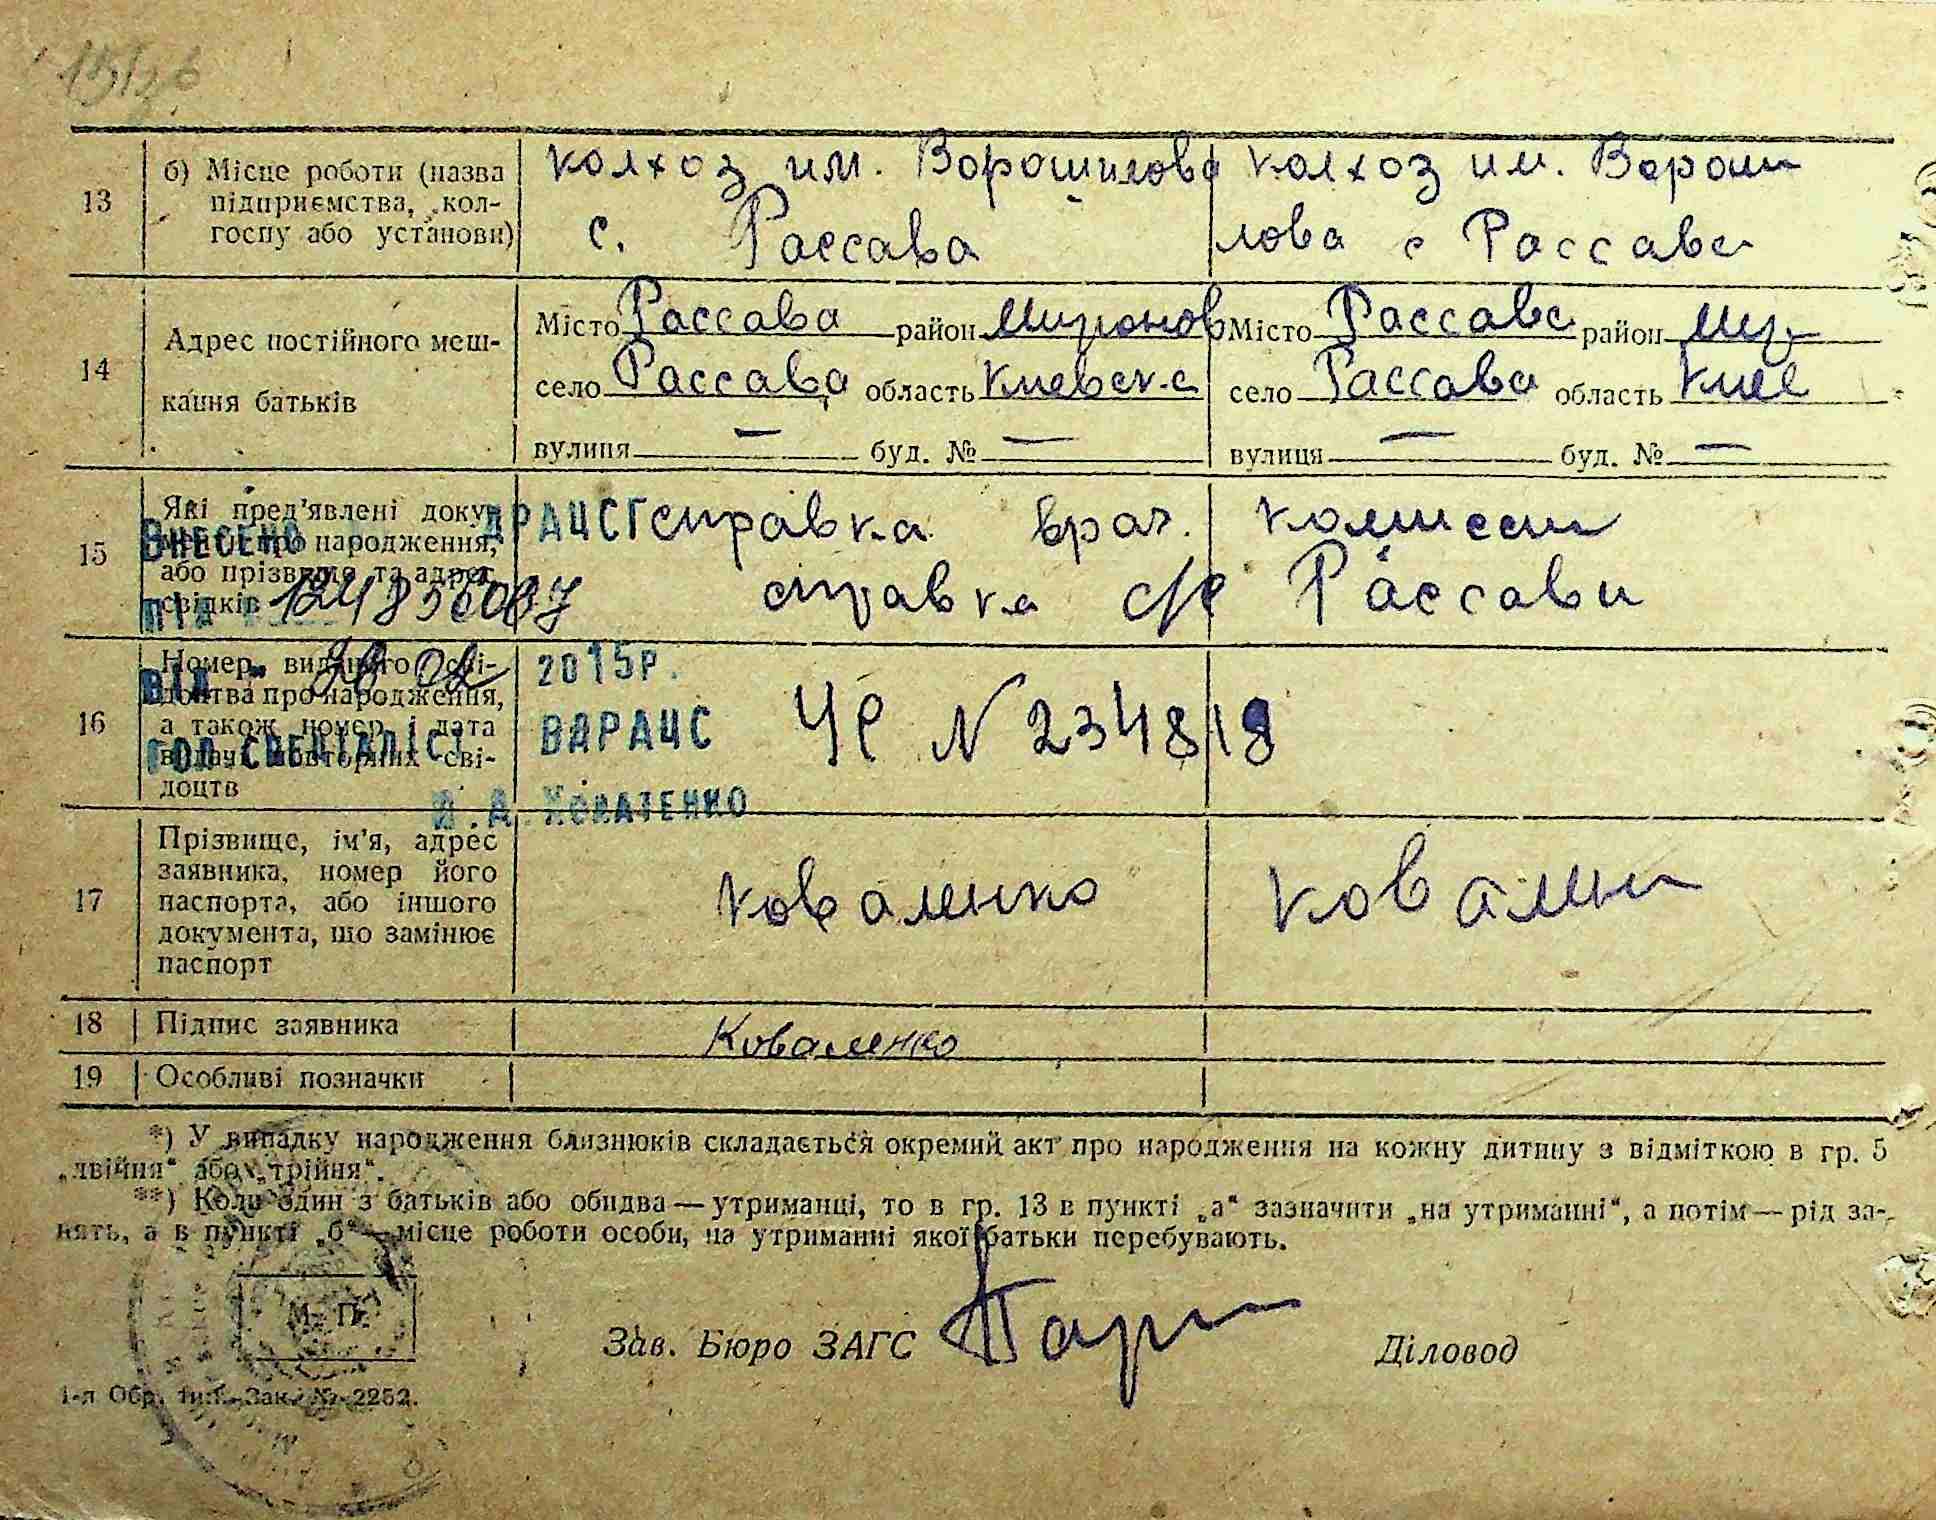 13 б) Місце роботи (назва підприємства, колгоспу або установи)
колхоз им. Ворошилова с. Россава
колхоз им. Вороши лова с Россава
14 Адрес постійного мешкання батьків
Місто Россава район Миронов
село Россава область Киевск.
вулиця — буд. № —
Місто Россава район Мир
село Россава область Киев
вулиця — буд. № —
15 Які пред'явлені документи про народження, або прізвище та адрес свідків
справка врач. комиссии
справка с/с Россави
ВНЕСЕНО ДРАЦСГ
ПІД
ВІД 2015р.
ГОЛ.СПЕЦІАЛІСТ ВДРАЦС
16 Номер виданого свідоцтва про народження, а також номер і дата видачі повторних свідоцтв
ЧС N 234818
17 Прізвище, ім'я, адрес заявника, номер його паспорта, або іншого документа, що замінює паспорт
Коваленко
18 Підпис заявника
Коваленко
19 Особливі позначки
*) У випадку народження близнюків складається окремий акт про народження на кожну дитину з відміткою в гр. 5
„двійня“ або „трійня“.
**) Коли один з батьків або обидва—утриманці, то в гр. 13 в пункті „а“ зазначити „на утриманні“, а потім—рід за-
нять, а в пункті „б“—місце роботи особи, на утриманні якої батьки перебувають.
М. П.
Зав. Бюро ЗАГС
Діловод
1-я Обр. тип. Зак. № 2252.